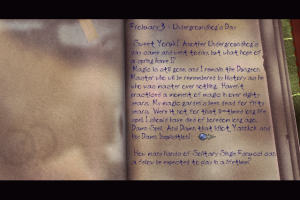 February 3 - Undergroundhog's Day
Sweet Yoruk! Another Undergroundhog's
Day come and went today, but what hope of
a spring have I?
Magic is still gone, and I remain the Dungeon
Master who will be remembered by history as he
who was master over nothing. Haven't
practiced a moment of magic in over eighty
years. My magic garden's been dead for fifty
years. Were it not for that long life
spell I should have died of boredom long ago.
Damn Spell. And Damn that Idiot Yannick and
his Damn Inquisition!
How many hands of Solitary Single Fanucci can
a fellow be expected to play in a lifetime?